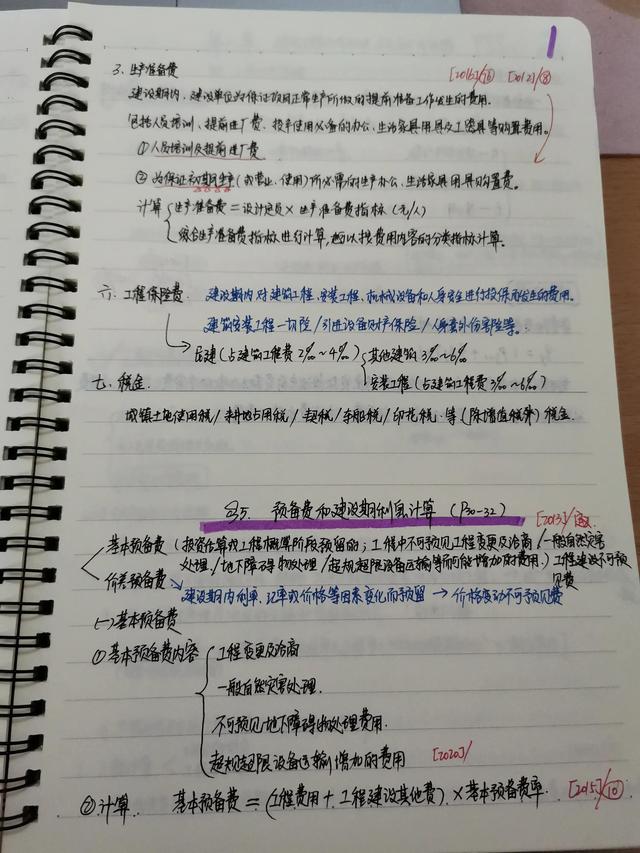 1
3. 生产准备费 [2016]/⑱ [2012]/⑧
建设期内、建设单位为保证项目正常生产所做的提前准备工作发生的费用。
包括人员培训、提前进厂费、投产使用必备的办公、生活家具用具及工器具等购置费用。
①人员培训及提前进厂费
②为保证初期生产(或营业、使用)所必需的生产办公、生活家具用具购置费。
计算 生产准备费=设计定员×生产准备费指标(元/人)
综合生产准备费指标进行计算,也可以按费用内容的分类指标计算。
六、工程保险费 建设期内对建筑工程、安装工程、机械设备和人身安全进行投保而发生的费用。
建筑安装工程一切险/引进设备财产保险/人身意外伤害险等。
民建(占建筑工程费2‰~4‰) 其他建筑3‰~6‰
安装工程(占建筑工程费3‰~6‰)
七、税金.
城镇土地使用税/耕地占用税/契税/车船税/印花税.等(除增值税外)税金.
§5. 预备费和建设期利息计算(P30-32)
[2013]/
基本预备费(投资估算或工程概算阶段预留的;工程中不可预见工程变更及洽商/一般自然灾害
处理/地下障碍物处理/超规超限设备运输等而可能增加的费用.)工程建设不可预
见费
价差预备费 建设期内利率、汇率或价格等因素变化而预留→价格变动不可预见费
(一)基本预备费
①基本预备费内容 工程变更及洽商
一般自然灾害处理.
不可预见地下障碍物处理费用.
超规超限设备运输增加的费用 [2020]/
②计算. 基本预备费=(工程费用+工程建设其他费)×基本预备费率. [2015]/⑩